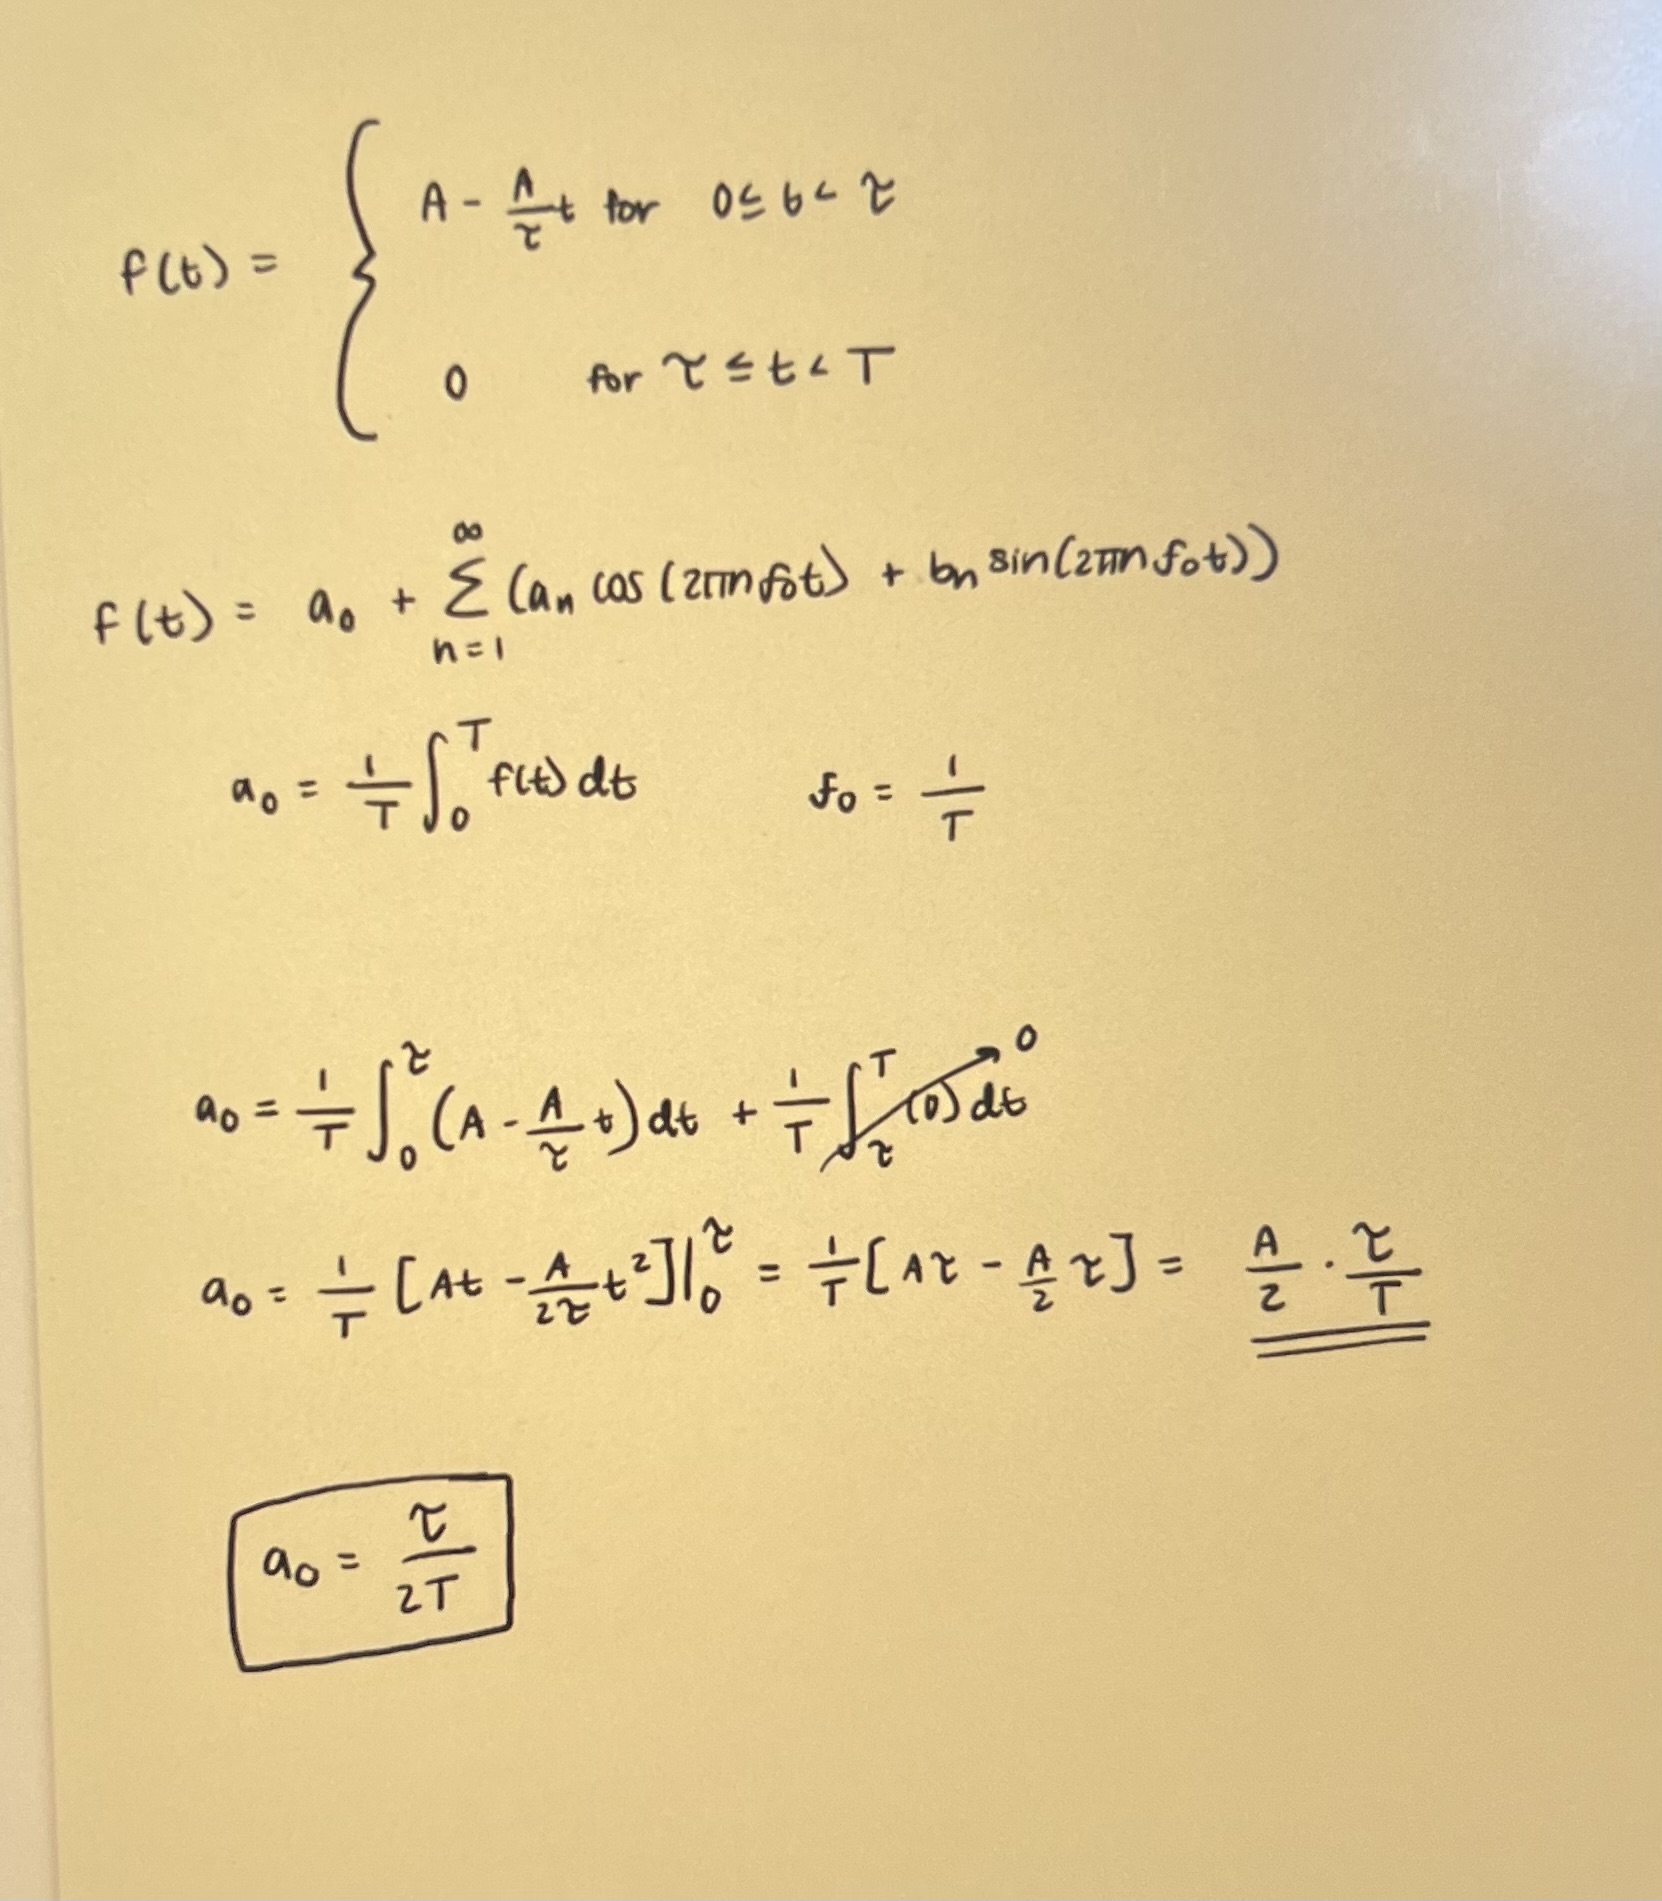 f(t) = { A - A/τ t for 0 ≤ t < τ
0 for τ ≤ t < T
f(t) = a₀ + ∑_{n=1}^{∞} (aₙ cos(2πn f₀t) + bₙ sin(2πn f₀t))
a₀ = 1/T ∫₀ᵀ f(t) dt f₀ = 1/T
a₀ = 1/T ∫₀^τ (A - A/τ t) dt + 1/T ∫_τ^T (0) dt → 0
a₀ = 1/T [At - A/2τ t²]|₀^τ = 1/T [Aτ - A/2 τ] = A/2 · τ/T
a₀ = τ/2T